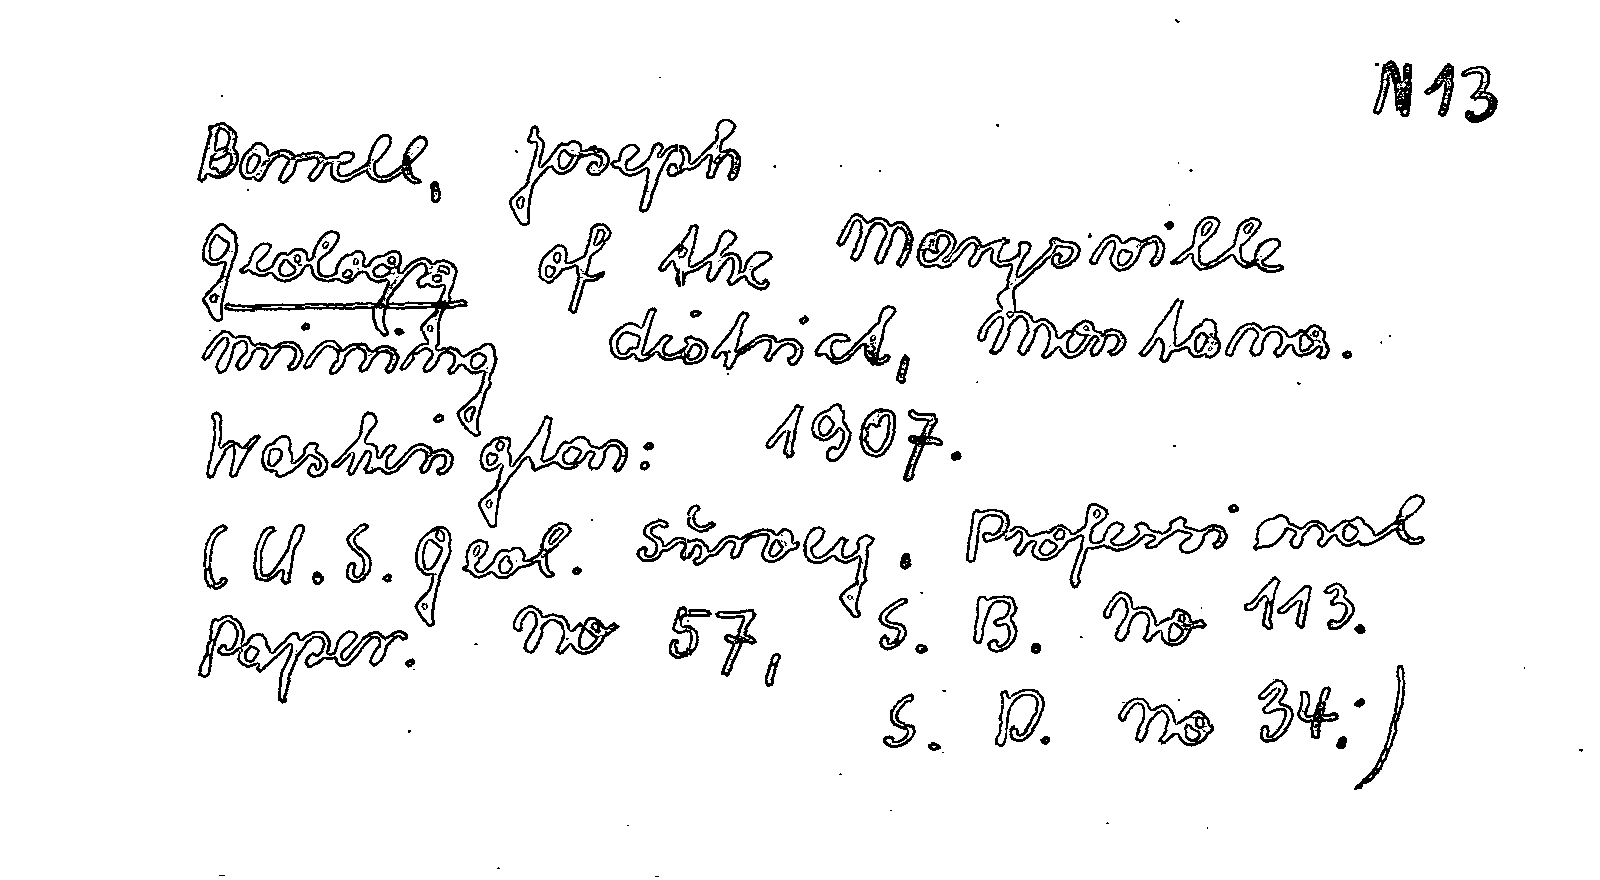 N13
Barrell, Joseph
Geology of the Marysville
mining district, Montana.
Washington: 1907.
(U.S. Geol. Survey. Professional
Paper. No 57, S. B. No 113.
S. D. No 34:)